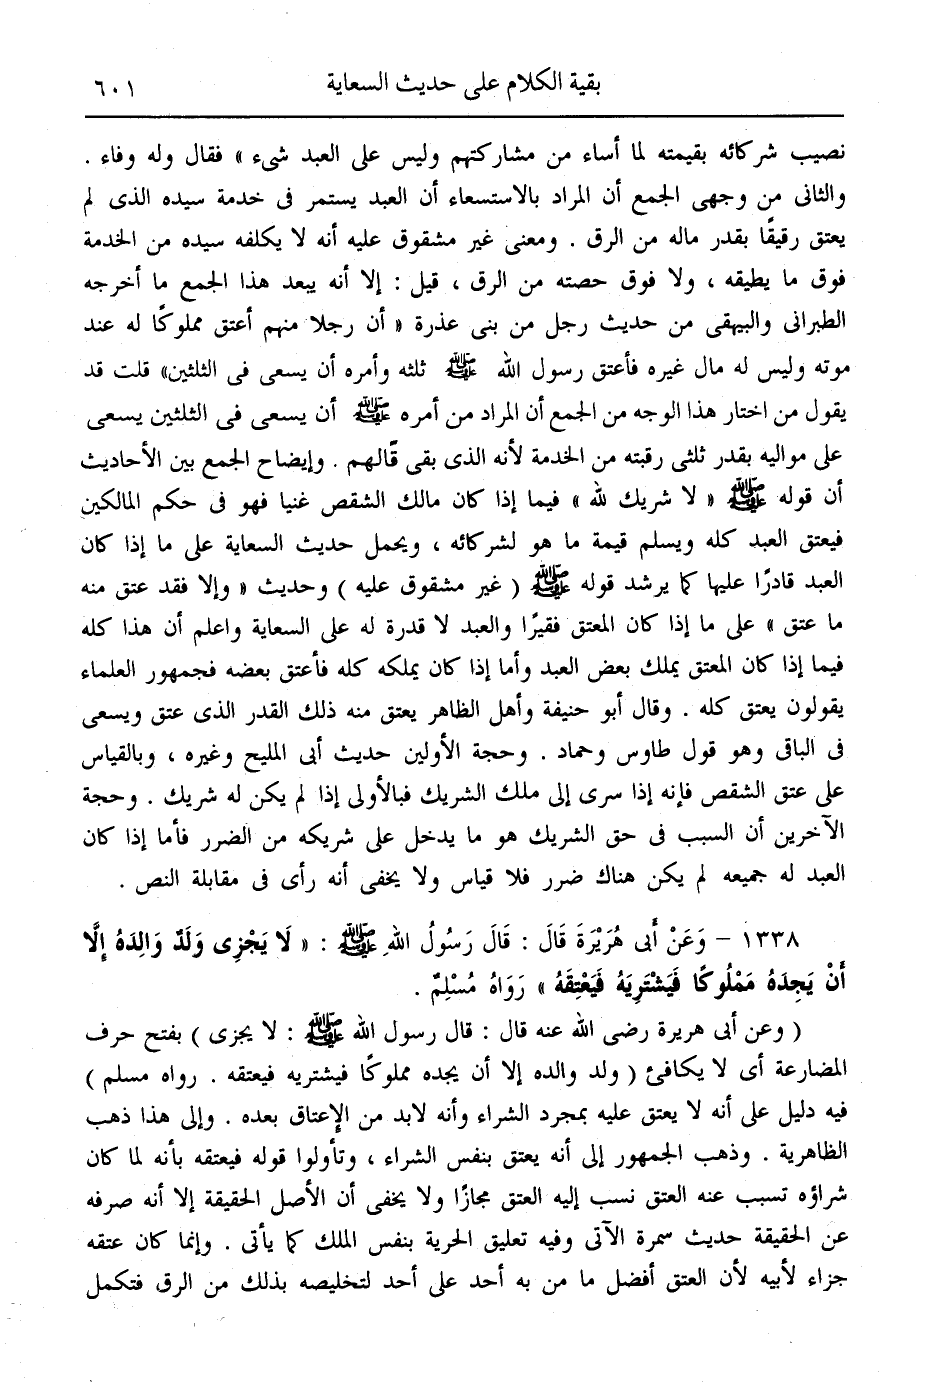 بقية الكلام على حديث السعاية ٦٠١
نصيب شركائه بقيمته لما أساء من مشاركتهم وليس على العبد شىء » فقال وله وفاء .
والثانى من وجهى الجمع أن المراد بالاستسعاء أن العبد يستمر فى خدمة سيده الذى لم
يعتق رقيقًا بقدر ماله من الرق . ومعنى غير مشقوق عليه أنه لا يكلفه سيده من الخدمة
فوق ما يطيقه ، ولا فوق حصته من الرق ، قيل : إلا أنه يبعد هذا الجمع ما أخرجه
الطبرانى والبيهقى من حديث رجل من بنى عذرة « أن رجلا منهم أعتق مملوكًا له عند
موته وليس له مال غيره فأعتق رسول الله ﷺ ثلثه وأمره أن يسعى فى الثلثين» قلت قد
يقول من اختار هذا الوجه من الجمع أن المراد من أمره ﷺ أن يسعى فى الثلثين يسعى
على مواليه بقدر ثلثى رقبته من الخدمة لأنه الذى بقى قًالهم . وإيضاح الجمع بين الأحاديث
أن قوله ﷺ « لا شريك لله » فيما إذا كان مالك الشقص غنيا فهو فى حكم المالكين
فيعتق العبد كله ويسلم قيمة ما هو لشركائه ، ويحمل حديث السعاية على ما إذا كان
العبد قادرًا عليها كما يرشد قوله ﷺ ( غير مشقوق عليه ) وحديث « وإلا فقد عتق منه
ما عتق » على ما إذا كان المعتق فقيرًا والعبد لا قدرة له على السعاية واعلم أن هذا كله
فيما إذا كان المعتق يملك بعض العبد وأما إذا كان يملكه كله فأعتق بعضه فجمهور العلماء
يقولون يعتق كله . وقال أبو حنيفة وأهل الظاهر يعتق منه ذلك القدر الذى عتق ويسعى
فى الباقى وهو قول طاوس وحماد . وحجة الأولين حديث أبى المليح وغيره ، وبالقياس
على عتق الشقص فإنه إذا سرى إلى ملك الشريك فبالأولى إذا لم يكن له شريك . وحجة
الآخرين أن السبب فى حق الشريك هو ما يدخل على شريكه من الضرر فأما إذا كان
العبد له جميعه لم يكن هناك ضرر فلا قياس ولا يخفى أنه رأى فى مقابلة النص .
١٣٣٨ – وَعَنْ أَبى هُرَيْرَةَ قَالَ : قَالَ رَسُولُ اللهِ ﷺ : « لَا يَجْزِى وَلَدٌ وَالِدَهُ إِلَّا
أَنْ يَجِدَهُ مَمْلُوكًا فَيَشْتَرِيَهُ فَيَعْتِقَهُ » رَوَاهُ مُسْلِمٌ .
( وعن أبى هريرة رضى الله عنه قال : قال رسول الله ﷺ : لا يجزى ) بفتح حرف
المضارعة أى لا يكافئ ( ولد والده إلا أن يجده مملوكًا فيشتريه فيعتقه . رواه مسلم )
فيه دليل على أنه لا يعتق عليه بمجرد الشراء وأنه لابد من الإعتاق بعده . وإلى هذا ذهب
الظاهرية . وذهب الجمهور إلى أنه يعتق بنفس الشراء ، وتأولوا قوله فيعتقه بأنه لما كان
شراؤه تسبب عنه العتق نسب إليه العتق مجازًا ولا يخفى أن الأصل الحقيقة إلا أنه صرفه
عن الحقيقة حديث سمرة الآتى وفيه تعليق الحرية بنفس الملك كما يأتى . وإنما كان عتقه
جزاء لأبيه لأن العتق أفضل ما من به أحد على أحد لتخليصه بذلك من الرق فتكمل